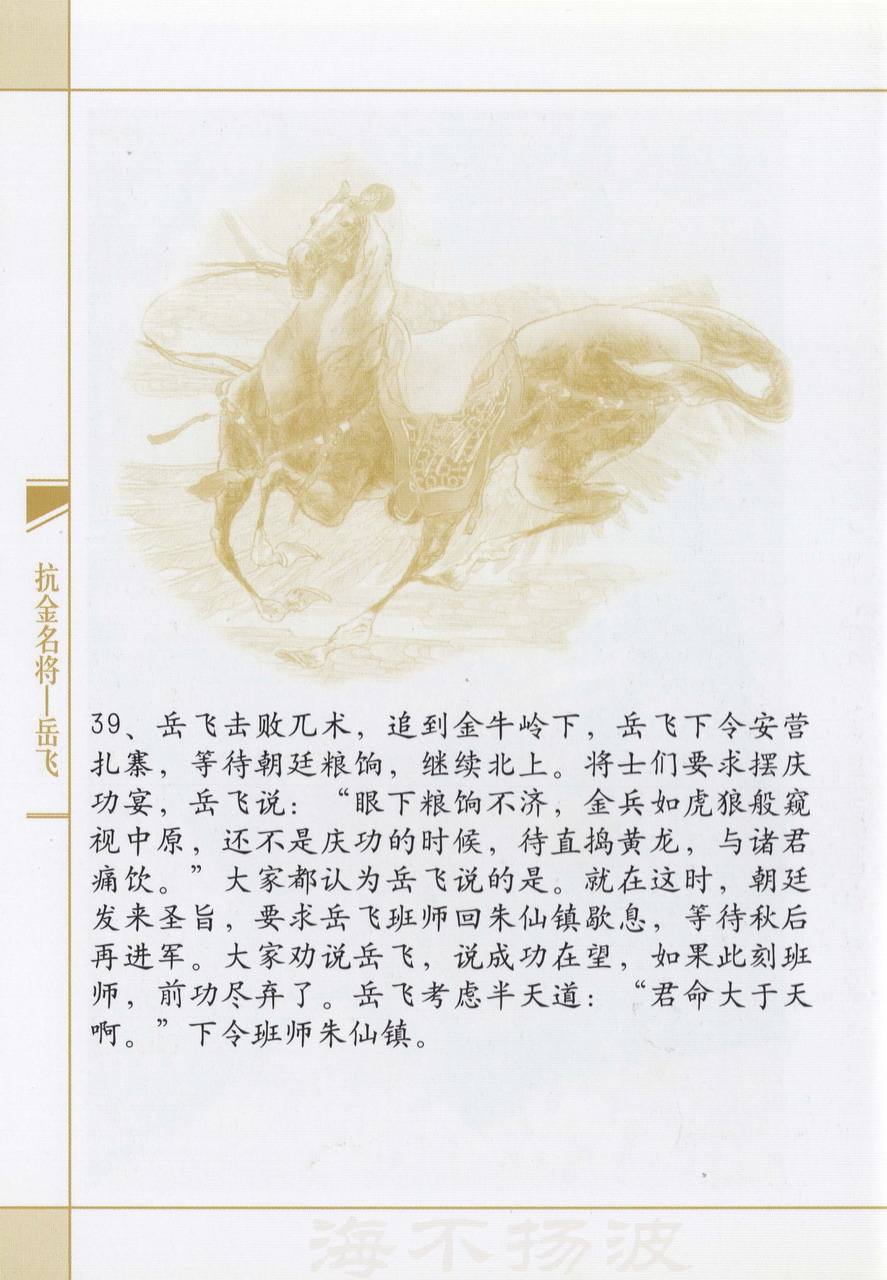 抗金名将—岳飞
39、岳飞击败兀术，追到金牛岭下，岳飞下令安营
扎寨，等待朝廷粮饷，继续北上。将士们要求摆庆
功宴，岳飞说：“眼下粮饷不济，金兵如虎狼般窥
视中原，还不是庆功的时候，待直捣黄龙，与诸君
痛饮。”大家都认为岳飞说的是。就在这时，朝廷
发来圣旨，要求岳飞班师回朱仙镇歇息，等待秋后
再进军。大家劝说岳飞，说成功在望，如果此刻班
师，前功尽弃了。岳飞考虑半天道：“君命大于天
啊。”下令班师朱仙镇。
海不扬波